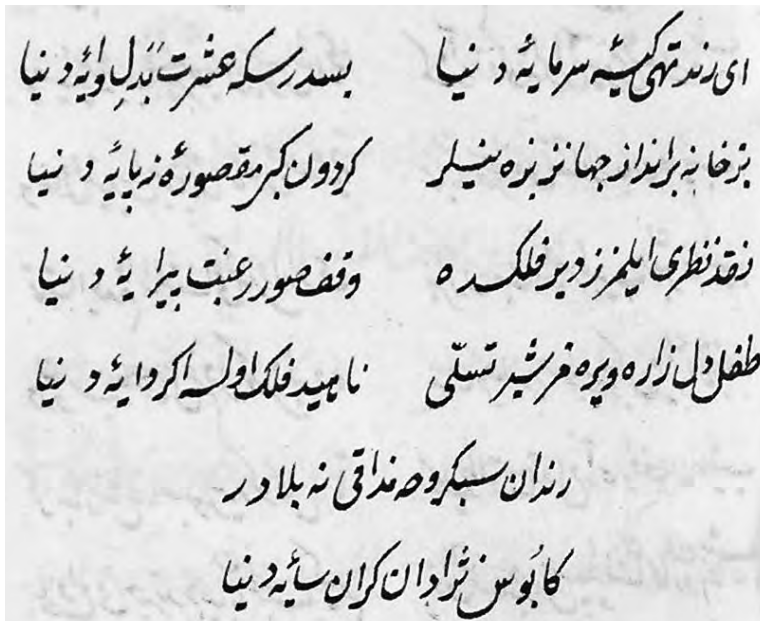 ای رند تهی کیسهٔ سرمایهٔ دنیا بسدر سکه عشرت بدل وایهٔ دنیا
بز خانه برانداز جهانز بزه نیلر کردون کبی مقصورهٔ نه پایهٔ دنیا
نقد نظری ایلمزز دیر فلکده وقف صور رغبت پیرایهٔ دنیا
طفل دل زاره ویره مز شیر تسلّی ناهید فلک اولسه اکر دایهٔ دنیا
رندان سبکروحه مذاقی نه بلادر
کابوس نژادان کران سایهٔ دنیا